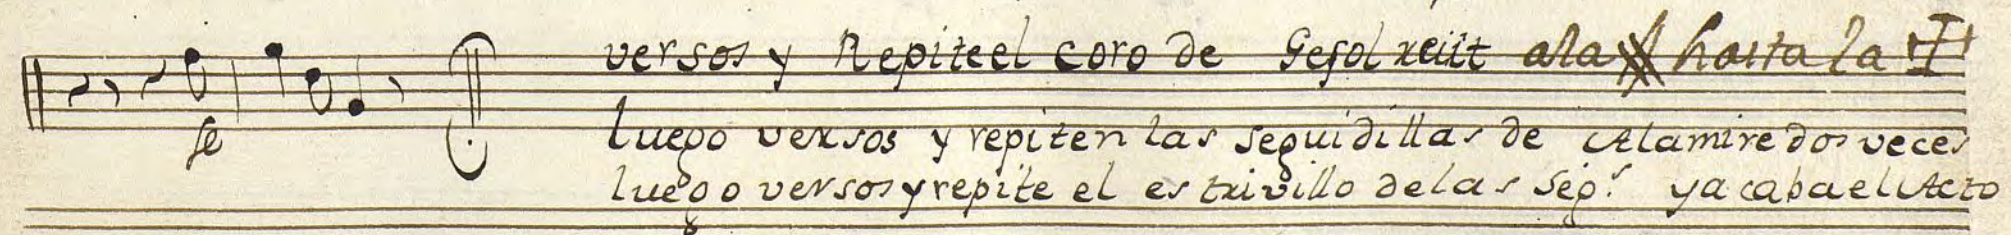 versos y Repite el coro de Gesolreút ala hasta la
se
luego versos y repiten las seguidillas de Alamire dos veces
luego versos y repite el estrivillo de las Seg.s y acaba el Acto